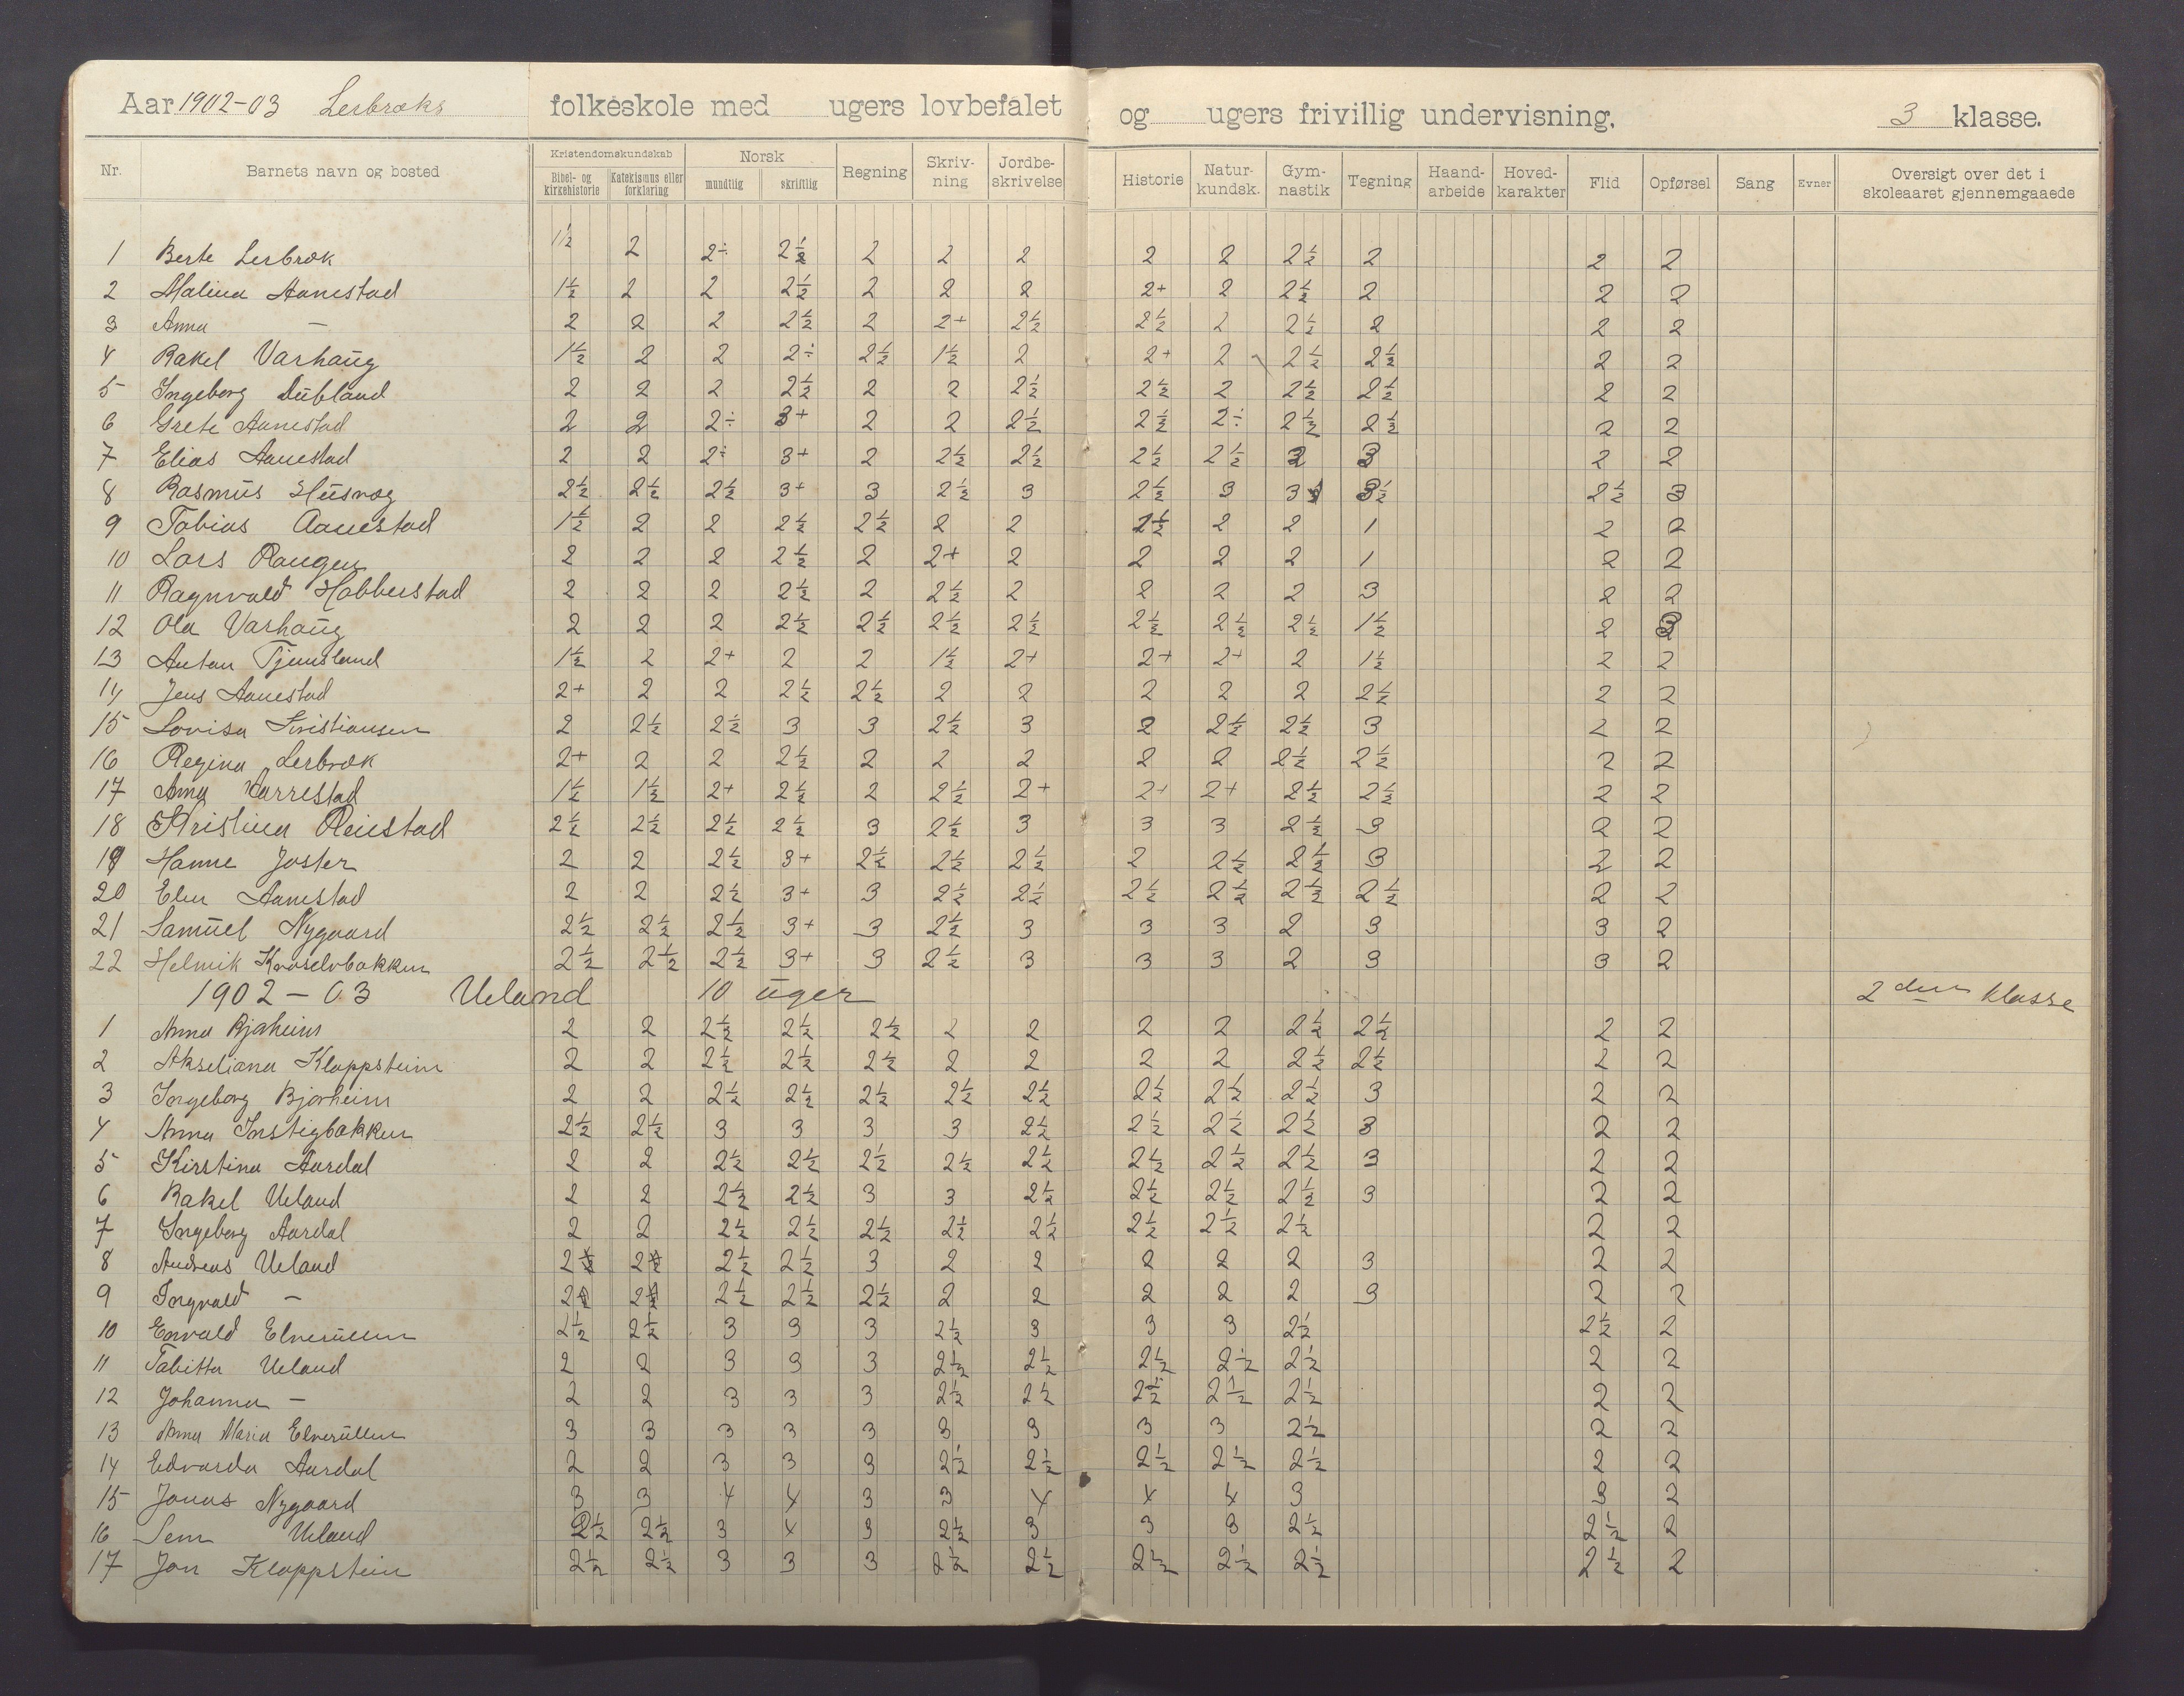 Aar 1902-03 Lerbræks folkeskole med ugers lovbefalet og ugers frivillig undervisning. 3 klasse.
Nr. Barnets navn og bosted Kristendomskundskab Bibel- og kirkehistorie Katekismus eller forklaring Norsk mundtlig skriftlig Regning Skriv-ning Jordbe-skrivelse Historie Natur-kundsk. Gym-nastik Tegning Haand-arbeide Hoved-karakter Flid Opførsel Sang Evner Oversigt over det i skoleaaret gjennemgaaede
1 Berte Lerbræk 1½ 2 2÷ 2½ 2 2 2 2 2 2½ 2 2 2
2 Malina Aanestad 1½ 2 2 2½ 2 2 2 2+ 2 2½ 2 2 2
3 Anna — 2 2 2 2½ 2 2+ 2½ 2½ 2 2½ 2 2 2
4 Rakel Varhaug 1½ 2 2 2÷ 2½ 1½ 2 2+ 2 2½ 2½ 2 2
5 Ingeborg Dubland 2 2 2 2½ 2 2 2½ 2½ 2 2½ 2½ 2 2
6 Grete Aanestad 2 2 2÷ 3+ 2 2 2½ 2½ 2÷ 2½ 2½ 2 2
7 Elias Aanestad 2 2 2÷ 3+ 2 2½ 2½ 2½ 2½ 3 2 2
8 Rasmus Husvæg 2½ 2½ 2½ 3+ 3 2½ 3 2½ 3 3 3½ 2½ 3
9 Tobias Aanestad 1½ 2 2 2½ 2½ 2 2 2½ 2 2 1 2 2
10 Lars Haugen 2 2 2 2½ 2 2+ 2 2 2 2 1 2 2
11 Ragnvald Hobberstad 2 2 2 2½ 2 2½ 2 2 2 2 3 2 2
12 Ola Varhaug 2 2 2 2½ 2½ 2½ 2½ 2½ 2½ 2½ 1½ 2 3
13 Anton Tjemsland 1½ 2 2+ 2 2 1½ 2+ 2+ 2+ 2 1½ 2 2
14 Jens Aanestad 2+ 2 2 2½ 2½ 2 2 2 2 2 2½ 2 2
15 Lovisa Kristiansen 2 2½ 2½ 3 3 2½ 3 2 2½ 2½ 3 2 2
16 Regina Lerbræk 2+ 2 2 2½ 2 2 2 2 2 2½ 2½ 2 2
17 Anna Varrestad 1½ 1½ 2+ 2½ 2 2½ 2+ 2+ 2+ 2½ 2½ 2 2
18 Kristina Reiestad 2½ 2½ 2½ 2½ 3 2½ 3 3 3 2½ 3 2 2
19 Hanne Joster 2 2 2½ 3+ 2½ 2½ 2½ 2 2½ 2½ 3 2 2
20 Elen Aanestad 2 2 2½ 3+ 3 2½ 2½ 2½ 2½ 2½ 2½ 2 2
21 Samuel Nygaard 2½ 2½ 2½ 3+ 3 2½ 3 3 3 2 3 3 2
22 Helmik Kvoselvbakken 2½ 2½ 2½ 3+ 3 2½ 3 3 3 2 3 3 2
1902-03 Ueland 10 uger 2den klasse
1 Anna Bjørheim 2 2 2½ 2½ 2½ 2 2 2 2 2½ 2½ 2 2
2 Akseliana Kloppstein 2 2 2½ 2½ 2½ 2 2 2 2 2½ 2½ 2 2
3 Ingeborg Bjørheim 2 2 2½ 2½ 2½ 2½ 2½ 2½ 2½ 2½ 3 2 2
4 Anna Instigbakken 2½ 2½ 3 3 3 3 2½ 2½ 2½ 2½ 3 2 2
5 Kirstina Aardal 2 2 2½ 2½ 2½ 2½ 2½ 2½ 2½ 2½ 3 2 2
6 Rakel Ueland 2 2 2½ 2½ 3 3 2½ 2½ 2½ 2½ 3 2 2
7 Ingeborg Aardal 2 2 2½ 2½ 2½ 2½ 2½ 2½ 2½ 2½ 2 2
8 Andreas Ueland 2 2 2½ 2½ 3 2 2 2 2 2 3 2 2
9 Ingvald — 2 2 2½ 2½ 2½ 2 2 2 2 2 3 2 2
10 Envald Elverullen 2½ 2½ 3 3 3 2½ 3 3 3 2½ 2½ 2
11 Tabitta Ueland 2 2 3 3 3 2½ 2½ 2½ 2½ 2½ 2 2
12 Johanna — 2 2 3 3 3 2½ 2½ 2½ 2½ 2½ 2 2
13 Anna Maria Elverullen 3 3 3 3 3 3 3 3 3 2½ 2 2
14 Edvarda Aardal 2 2 3 3 3 2½ 2½ 2½ 2½ 2½ 2 2
15 Jonas Nygaard 3 3 4 4 3 3 4 4 4 3 3 2
16 Sem Ueland 2½ 2½ 3 4 3 2½ 3 3 3 2½ 2½ 2
17 Jon Kloppstein 2½ 2½ 3 3 3 2½ 2½ 2½ 2½ 2½ 2½ 2